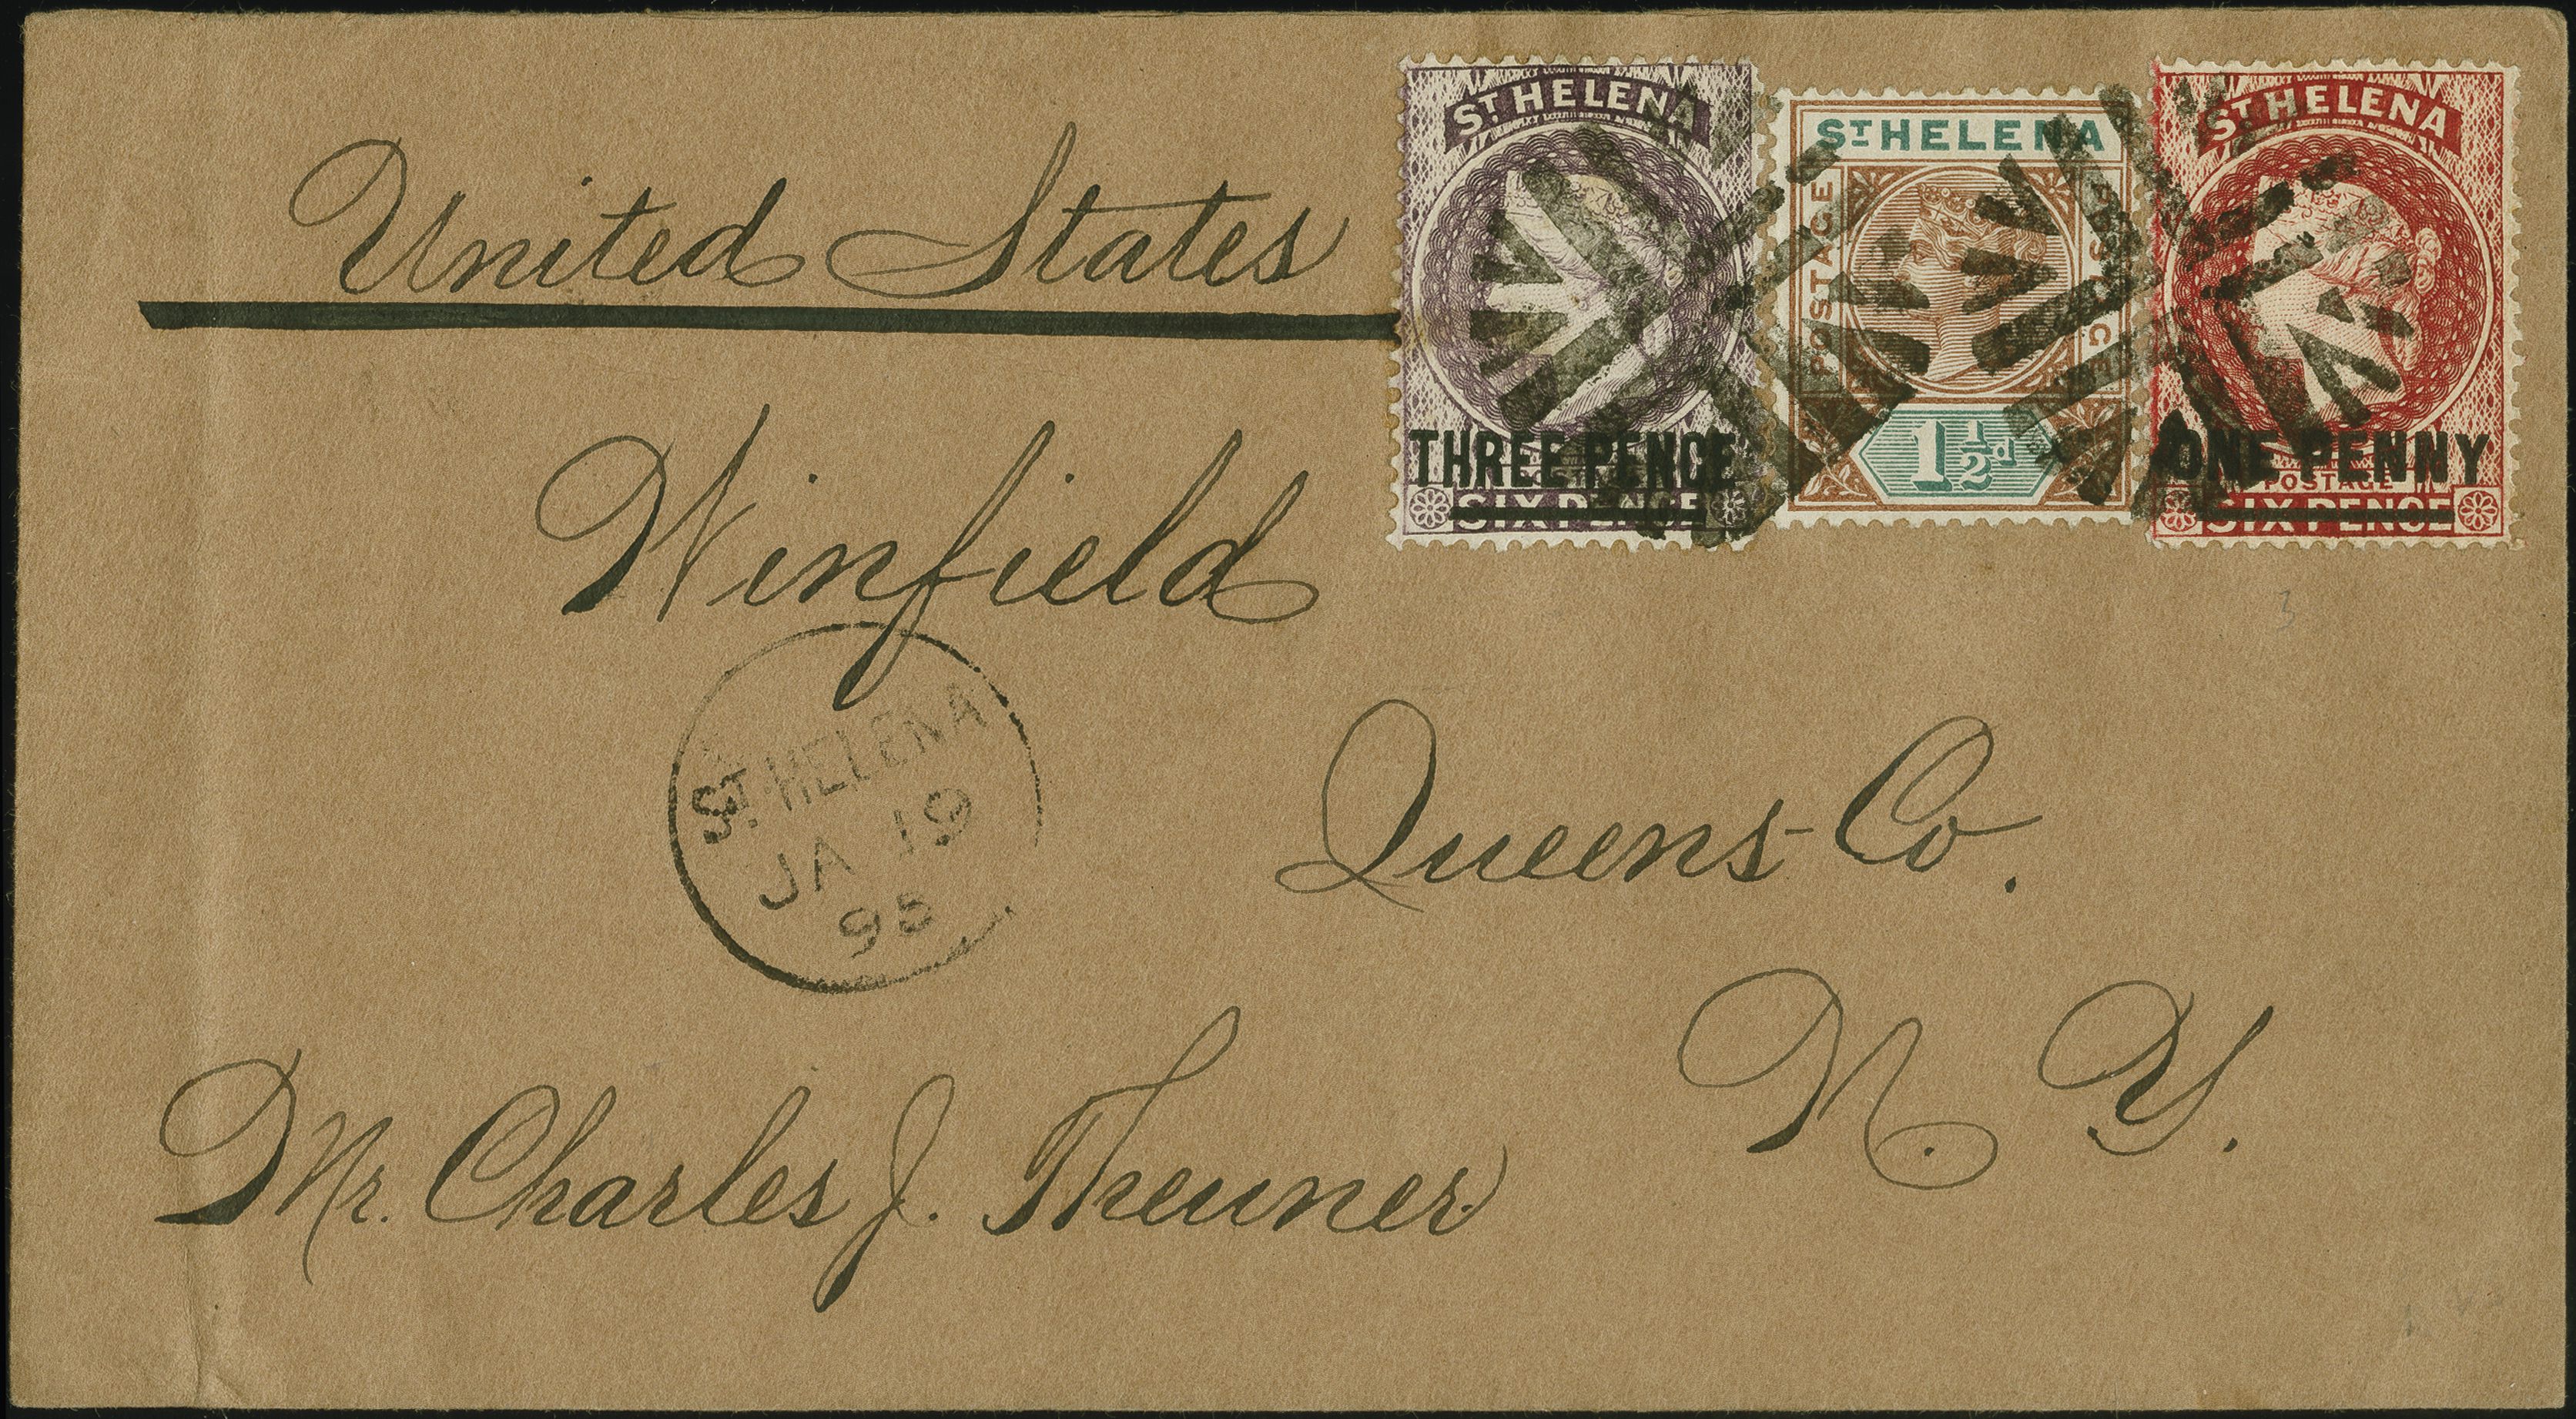 United States
Winfield
Queens Co.
N. Y.
Mr. Charles J. Theuner
ST. HELENA
JA 19
95
ST HELENA
THREE PENCE
SIX PENCE
ST HELENA
POSTAGE
1½d
ST HELENA
ONE PENNY
POSTAGE
SIX PENCE
3